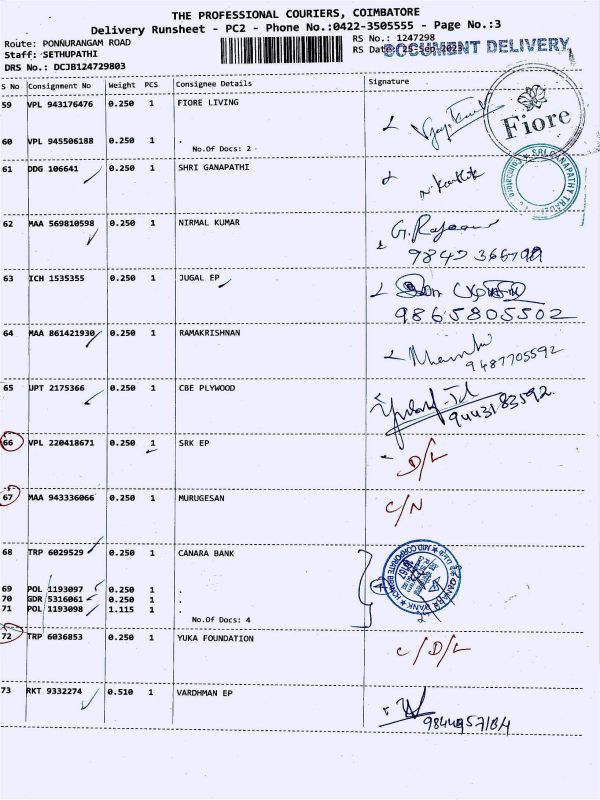 THE PROFESSIONAL COURIERS, COIMBATORE
Delivery Runsheet - PC2 - Phone No.:0422-3505555 - Page No.:3
Route: PONNURANGAM ROAD
Staff: SETHUPATHI
DRS No.: DCJB124729803
RS No.: 1247298
RS Date:
DOCUMENT DELIVERY
S No Consignment No Weight PCS Consignee Details Signature
59 VPL 943176476 0.250 1 FIORE LIVING
Fiore
60 VPL 945506188 0.250 1 .
No.Of Docs: 2
61 DDG 106641 0.250 1 SHRI GANAPATHI
62 MAA 569810598 0.250 1 NIRMAL KUMAR
63 ICH 1535355 0.250 1 JUGAL EP
9865805502
64 MAA 861421930 0.250 1 RAMAKRISHNAN
9487705592
65 UPT 2175366 0.250 1 CBE PLYWOOD
9443183592
66 VPL 220418671 0.250 1 SRK EP
D/L
67 MAA 943336066 0.250 1 MURUGESAN
C/N
68 TRP 6029529 0.250 1 CANARA BANK
69 POL 1193097 0.250 1 .
70 GDR 5316061 0.250 1 .
71 POL 1193098 1.115 1 .
No.Of Docs: 4
72 TRP 6036853 0.250 1 YUKA FOUNDATION
C/D/L
73 RKT 9332274 0.510 1 VARDHMAN EP